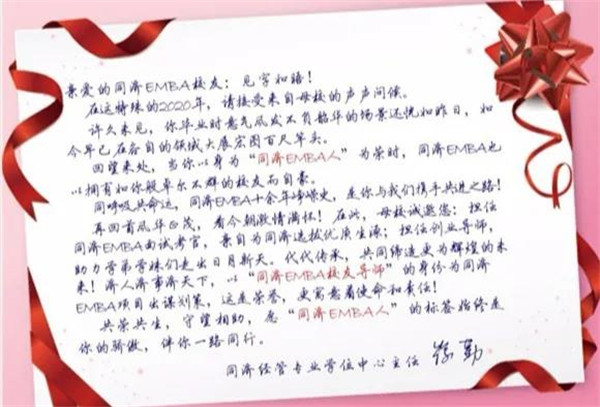 亲爱的同济EMBA校友：见字如晤！
在这特殊的2020年，请接受来自母校的声声问候。
许久未见，你毕业时意气风发不负韶华的场景还恍如昨日，如
今早已在各自的领域大展宏图百尺竿头。
回望来处，当你以身为“同济EMBA人”为荣时，同济EMBA也
以拥有如你般卓尔不群的校友而自豪。
同呼吸共命运，同济EMBA十余年峥嵘史，是你与我们携手共进之路！
再回首风华正茂，看今朝激情满怀！在此，母校诚邀您：担任
同济EMBA面试考官，亲自为同济选拔优质生源；担任创业导师，
助力学弟学妹们走出日月新天。代代传承，共同缔造更为辉煌的未
来！济人济事济天下，以“同济EMBA校友导师”的身份为同济
EMBA项目出谋划策，这是荣誉，更寓意着使命和责任！
共荣共生，守望相助，愿“同济EMBA人”的标签始终是
你的骄傲，伴你一路同行。
同济经管专业学位中心主任